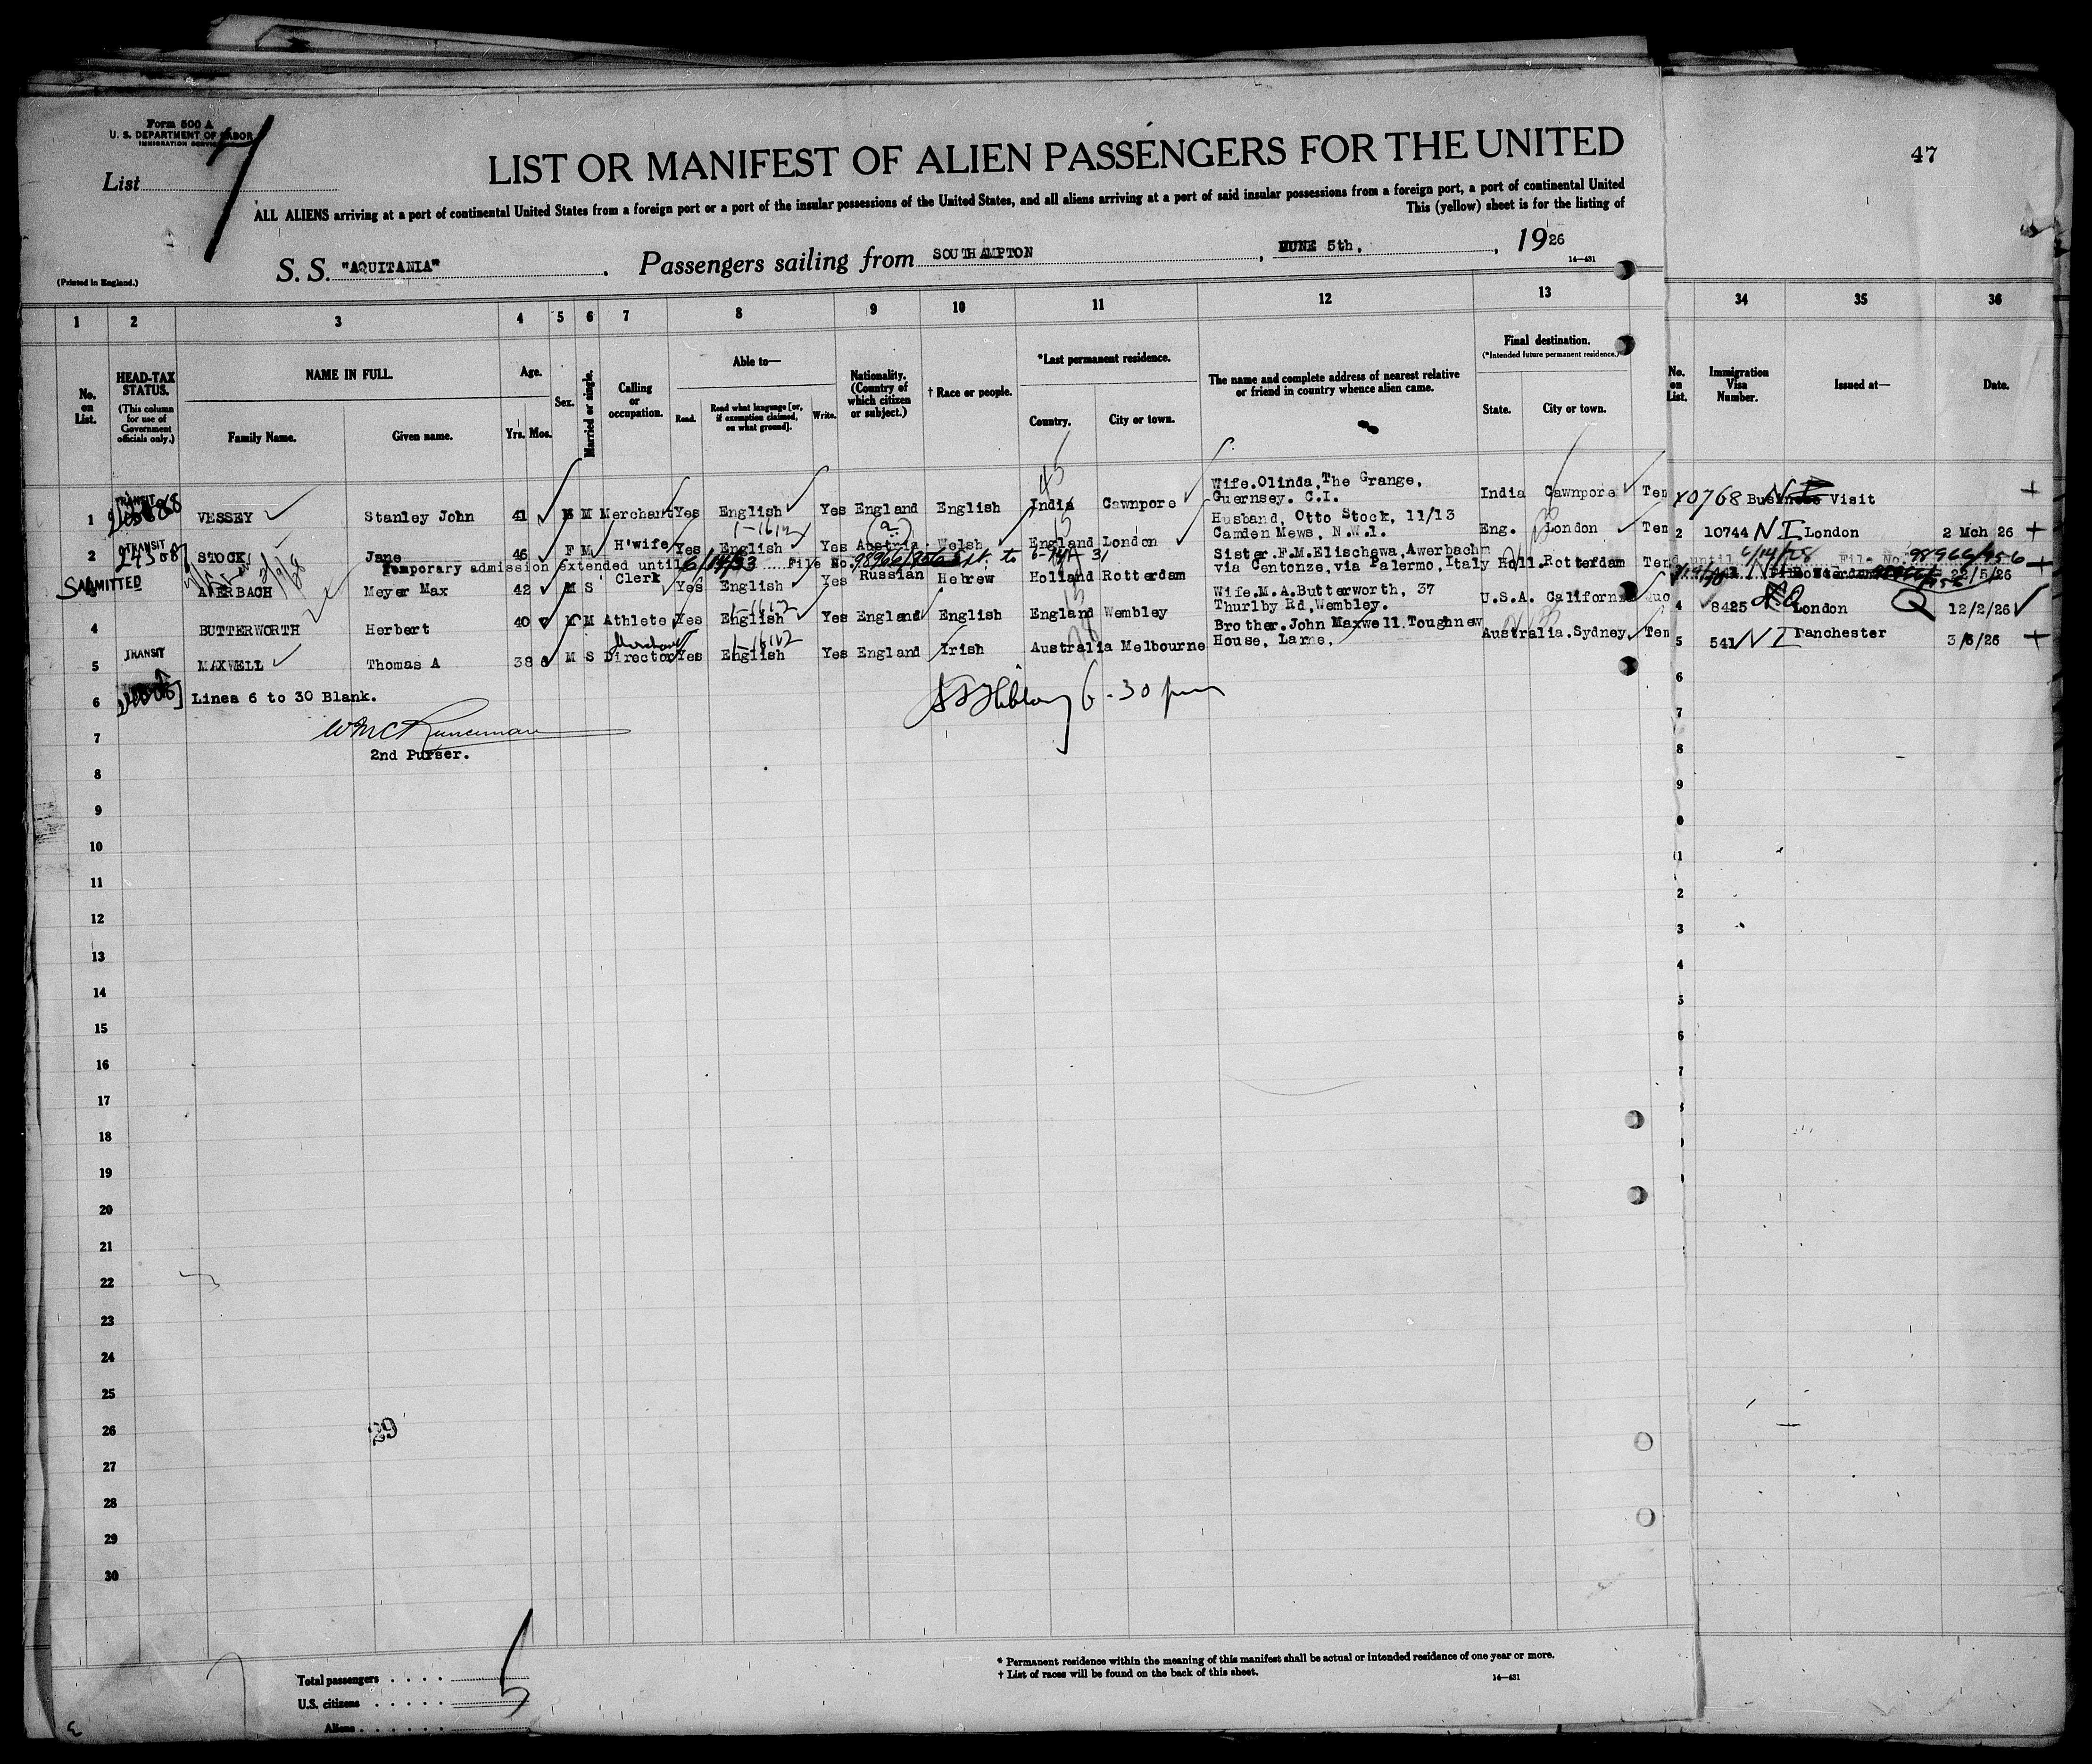 Form 500 A
U. S. DEPARTMENT OF LABOR
IMMIGRATION SERVICE
List 7
LIST OR MANIFEST OF ALIEN PASSENGERS FOR THE UNITED
47
ALL ALIENS arriving at a port of continental United States from a foreign port or a port of the insular possessions of the United States, and all aliens arriving at a port of said insular possessions from a foreign port, a port of continental United
This (yellow) sheet is for the listing of
S. S. "AQUITANIA". Passengers sailing from SOUTHAMPTON, JUNE 5th, , 1926
14—431
(Printed in England.)
1 2 3 4 5 6 7 8 9 10 11 12 13 34 35 36
No. on List.
HEAD-TAX STATUS.
(This column for use of Government officials only.)
NAME IN FULL.
Family Name. Given name.
Age.
Yrs. Mos.
Sex.
Married or single.
Calling or occupation.
Able to—
Read. Read what language [or, if exemption claimed, on what ground]. Write.
Nationality. (Country of which citizen or subject.)
† Race or people.
*Last permanent residence.
Country. City or town.
The name and complete address of nearest relative or friend in country whence alien came.
Final destination.
(*Intended future permanent residence.)
State. City or town.
No. on List.
Immigration Visa Number.
Issued at—
Date.
1 TRANSIT VESSEY Stanley John 41 M M Merchant Yes English Yes England English India Cawnpore Wife.Olinda,The Grange, Guernsey. C.I. India Cawnpore Tem 10768 Business Visit
2 TRANSIT STOCK Jane 46 F M H'wife Yes English Yes Austria Welsh England London Husband, Otto Stock, 11/13 Camden Mews, N.W.1. Eng. London Tem 2 10744 N I London 2 Mch 26
Temporary admission extended until 6/14/33 File No. 98966/956 Ext. to 6-14-31
until 6/14/28 File No. 98966/956
ADMITTED AWERBACH Meyer Max 42 M S Clerk Yes English Yes Russian Hebrew Holland Rotterdam Sister.F.M.Elischewa,Awerbach via Centonze,via Palermo,Italy Holl.Rotterdam Tem 22/5/26
4 BUTTERWORTH Herbert 40 M M Athlete Yes English Yes England English England Wembley Wife.M.A.Butterworth, 37 Thurlby Rd,Wembley. U.S.A. California Quo 4 8425 London Q 12/2/26
5 TRANSIT MAXWELL Thomas A 38 M S Director Yes English Yes England Irish Australia Melbourne Brother.John Maxwell.Toughnew House, Larne. Australia.Sydney Tem 5 541 N I Manchester 3/6/26
6 Lines 6 to 30 Blank.
6-30 pm
7
2nd Purser.
8
9
10
11
12
13
14
15
16
17
18
19
20
21
22
23
24
25
26
27
28
29
30
Total passengers 5
U.S. citizens
Aliens
* Permanent residence within the meaning of this manifest shall be actual or intended residence of one year or more.
† List of races will be found on the back of this sheet.
14—431